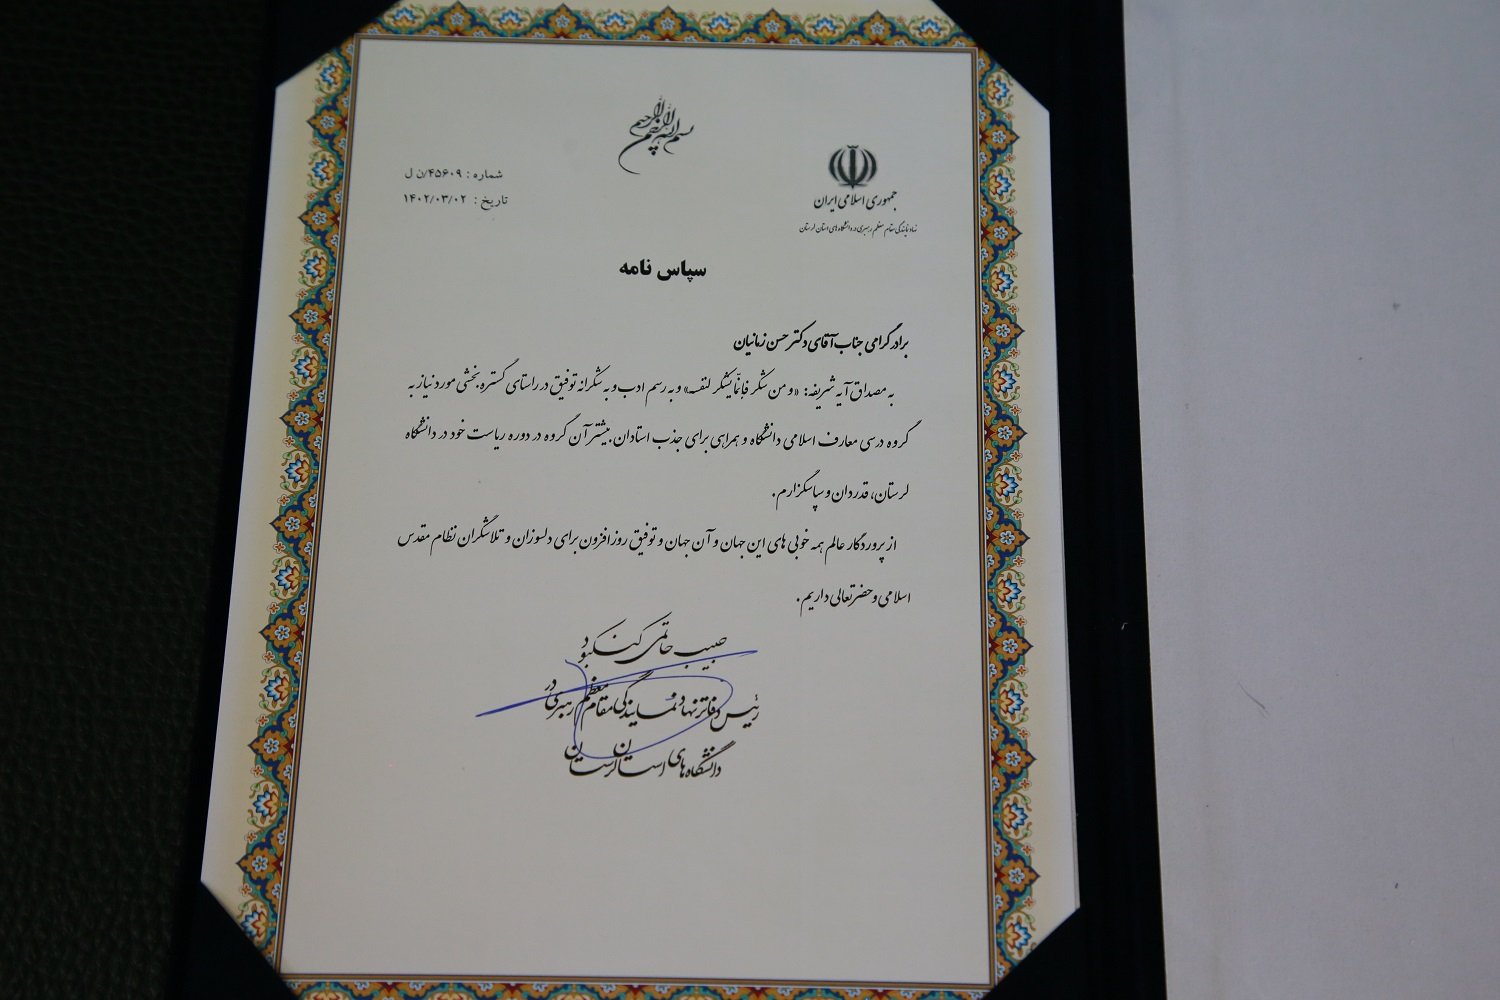 بسم الله الرحمن الرحیم
جمهوری اسلامی ایران
نهاد نمایندگی مقام معظم رهبری در دانشگاه‌های استان لرستان
شماره : ۴۵۶۰۹/ن ل
تاریخ : ۱۴۰۲/۰۳/۰۲
سپاس نامه
برادر گرامی جناب آقای دکتر حسن زمانیان
به مصداق آیه شریفه: «و من شکر فانّما یشکر لنفسه» و به رسم ادب و به شکرانه توفیق در راستای گستره بخشی مورد نیاز به
گروه درسی معارف اسلامی دانشگاه و همراهی برای جذب استادان بیشتر آن گروه در دوره ریاست خود در دانشگاه
لرستان، قدردان و سپاسگزارم.
از پروردگار عالم همه خوبی های این جهان و آن جهان و توفیق روزافزون برای دلسوزان و تلاشگران نظام مقدس
اسلامی و حضرتعالی داریم.
حبیب حاتمی کنکبود
رئیس دفاتر نهاد نمایندگی مقام معظم رهبری در
دانشگاه های استان لرستان